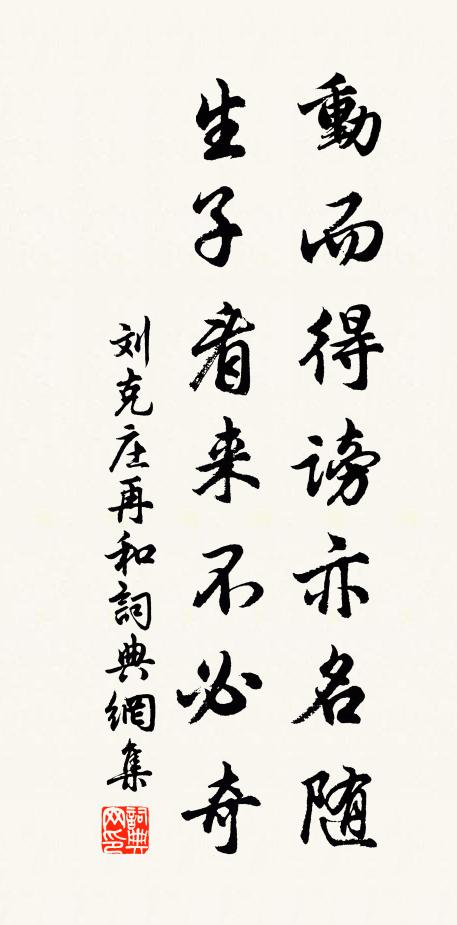 動而得謗亦名随
生子看来不必奇
刘克庄再和詞典網集
詞典网印